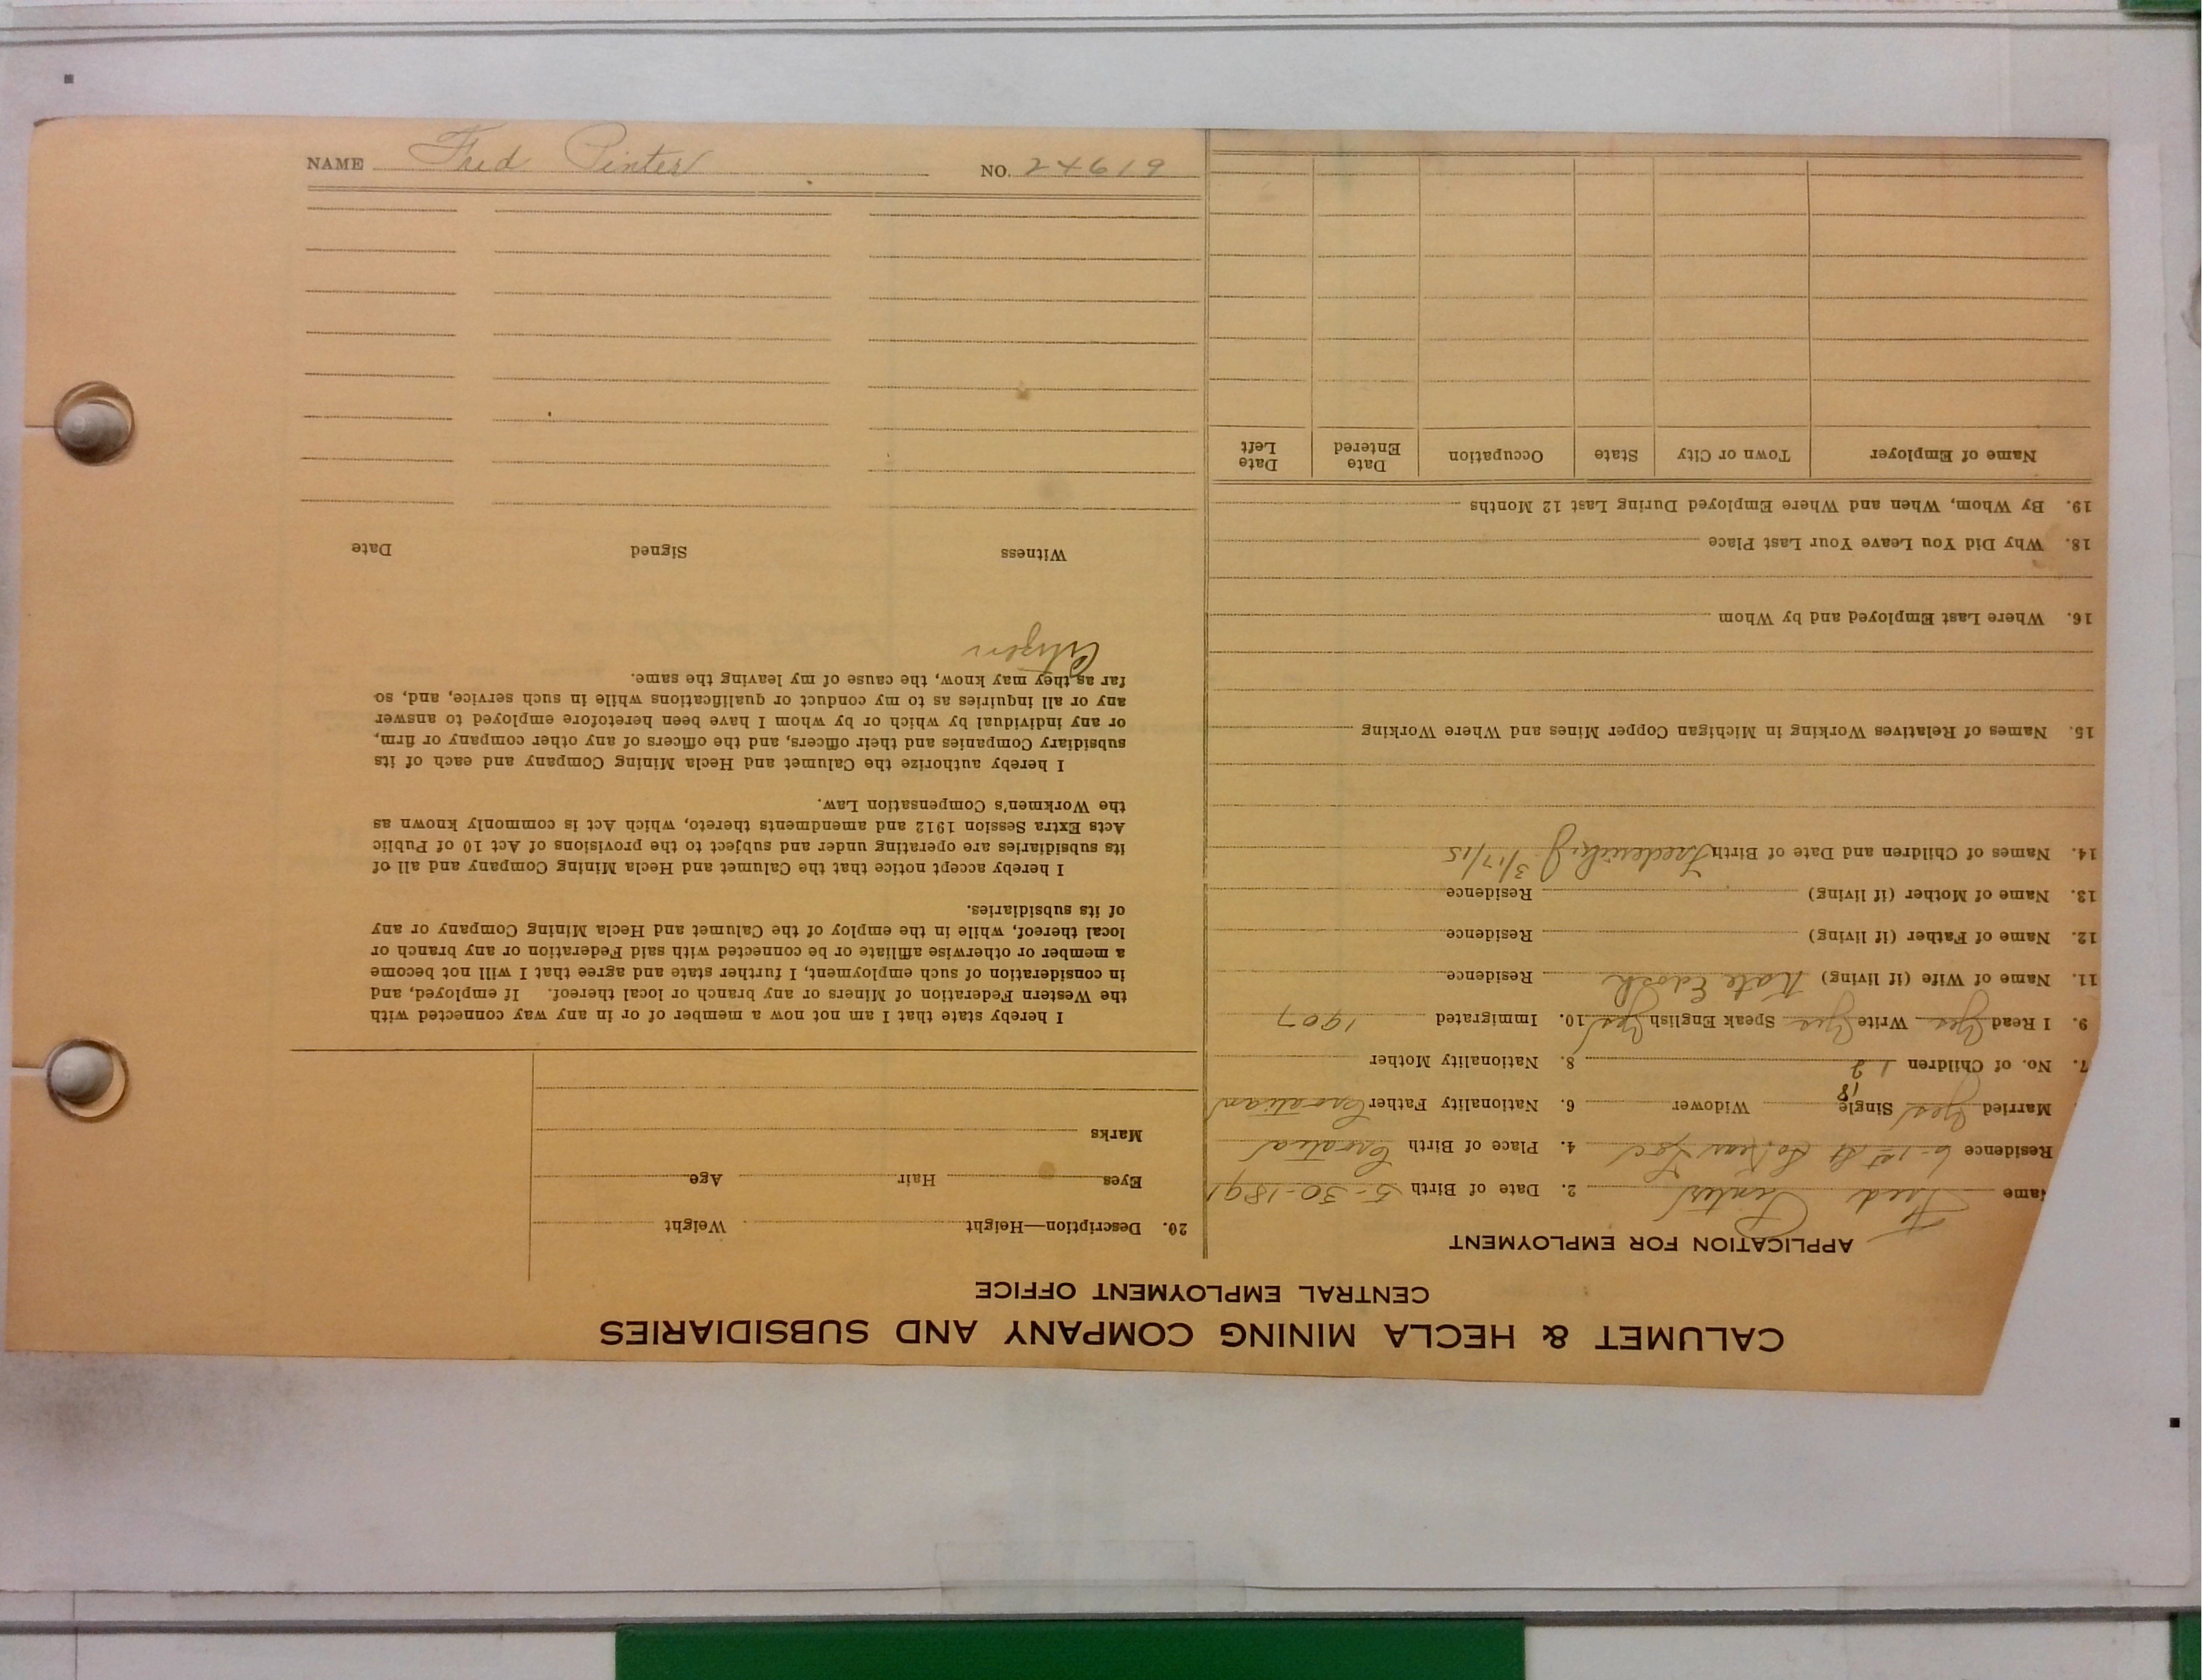 NAME Fred Pinter NO. 24619
CALUMET & HECLA MINING COMPANY AND SUBSIDIARIES
CENTRAL EMPLOYMENT OFFICE
APPLICATION FOR EMPLOYMENT
ame Fred Pinter 2. Date of Birth 5-30-1891
Residence 6-1st St 4. Place of Birth Croatia
Married Yes Single Widower 6. Nationality Father Croatian
7. No. of Children 8. Nationality Mother
9. I Read Yes Write Yes Speak English Yes 10. Immigrated 1907
11. Name of Wife (if living) Kate Residence
12. Name of Father (if living) Residence
13. Name of Mother (if living) Residence
14. Names of Children and Date of Birth 3/17/15
15. Names of Relatives Working in Michigan Copper Mines and Where Working
16. Where Last Employed and by Whom
18. Why Did You Leave Your Last Place
19. By Whom, When and Where Employed During Last 12 Months
Name of Employer Town or City State Occupation Date Entered Date Left
20. Description—Height Weight
Eyes Hair Age
Marks
I hereby state that I am not now a member of or in any way connected with
the Western Federation of Miners or any branch or local thereof. If employed, and
in consideration of such employment, I further state and agree that I will not become
a member or otherwise affiliate or be connected with said Federation or any branch or
local thereof, while in the employ of the Calumet and Hecla Mining Company or any
of its subsidiaries.
I hereby accept notice that the Calumet and Hecla Mining Company and all of
its subsidiaries are operating under and subject to the provisions of Act 10 of Public
Acts Extra Session 1912 and amendments thereto, which Act is commonly known as
the Workmen's Compensation Law.
I hereby authorize the Calumet and Hecla Mining Company and each of its
subsidiary Companies and their officers, and the officers of any other company or firm,
or any individual by which or by whom I have been heretofore employed to answer
any or all inquiries as to my conduct or qualifications while in such service, and, so
far as they may know, the cause of my leaving the same.
Citizen
Witness Signed Date